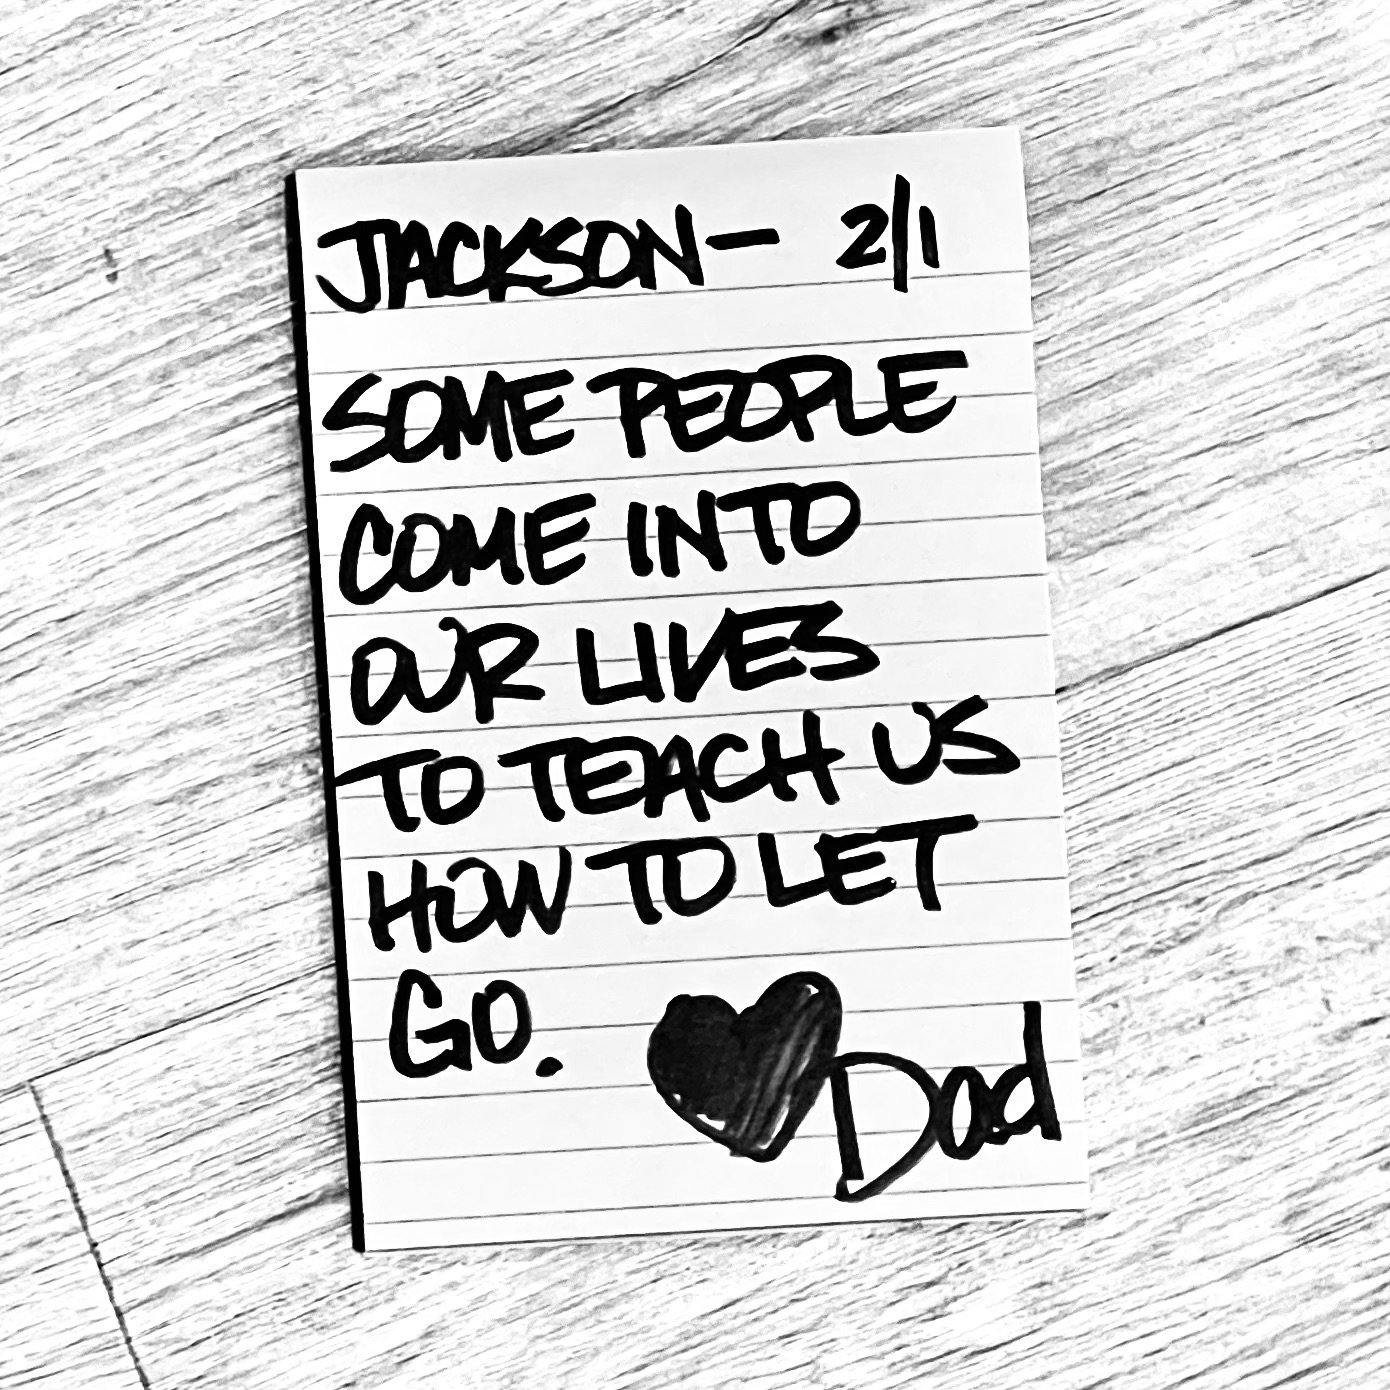 JACKSON— 2/1
SOME PEOPLE
COME INTO
OUR LIVES
TO TEACH US
HOW TO LET
GO.
Dad